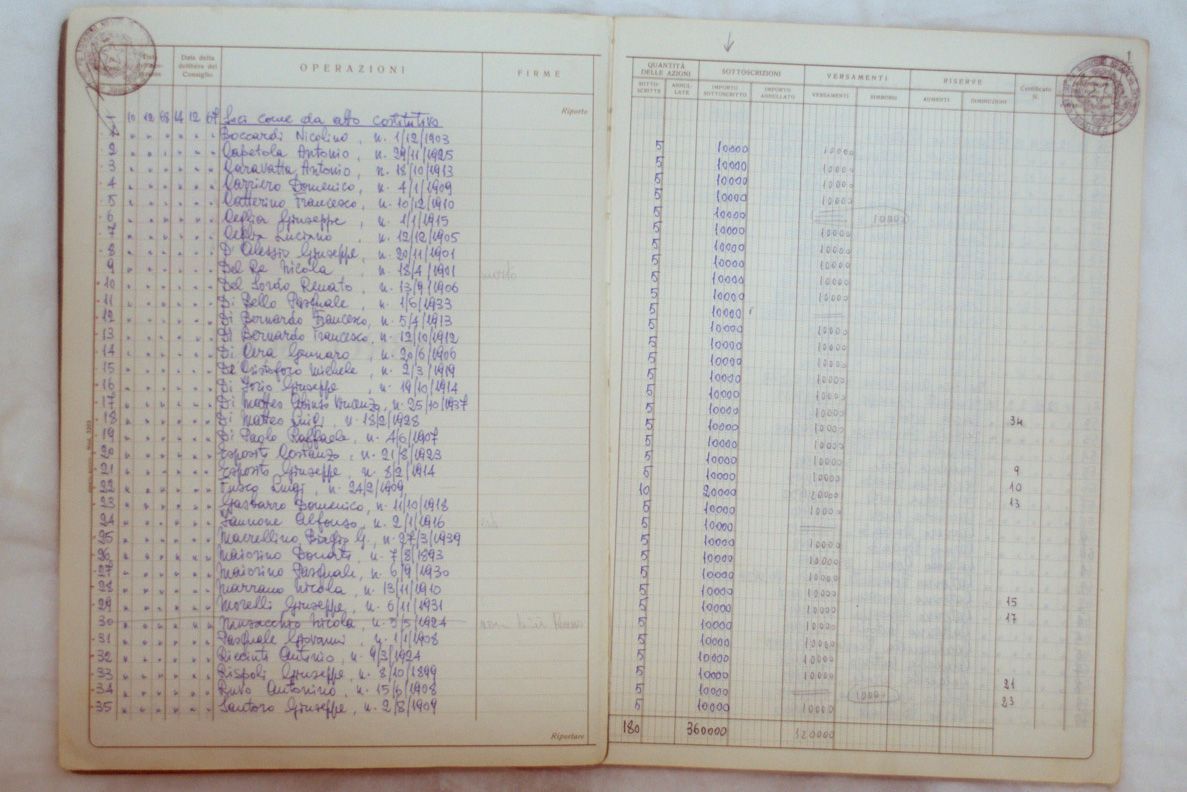 1
Data della delibera del Consiglio
OPERAZIONI
FIRME
QUANTITÀ DELLE AZIONI
SOTTOSCRIZIONI
VERSAMENTI
RISERVE
Certificato N.
SOTTO-SCRITTE
ANNUL-LATE
IMPORTO SOTTOSCRITTO
IMPORTO ANNULLATO
VERSAMENTI
RIMBORSO
AUMENTI
DIMINUZIONI
Riporto
10 12 67 Soci come da atto costitutivo
1 Boccardi Nicolino, n. 1/12/1903 5 10000 10000
2 Capetola Antonio, n. 29/11/1925 5 10000 10000
3 Caravatta Antonio, n. 18/10/1913 5 10000 10000
4 Carriero Domenico, n. 4/1/1909 5 10000 10000
5 Catterino Francesco, n. 10/12/1910 5 10000
6 Giuseppe, n. 1/1/1915 5 10000
7 Luciano, n. 12/12/1905 5 10000 10000
8 D'Alessio Giuseppe, n. 20/11/1901 5 10000 10000
9 Del Re Nicola, n. 18/4/1901 5 10000 10000
10 Del Sordo Renato, n. 13/9/1906 5 10000 10000
11 Di Bello Pasquale, n. 1/6/1933 5 10000
12 Di Bernardo Francesco, n. 5/4/1913 5 10000 10000
13 Di Bernardo Francesco, n. 12/10/1912 5 10000 10000
14 Di Cera Gennaro, n. 20/6/1906 5 10000 10000
15 De Cristofaro Michele, n. 2/3/1919 5 10000 10000
16 Di Iorio Giuseppe, n. 19/10/1914 5 10000 10000
17 Di Matteo Vincenzo, n. 25/10/1937 5 10000 10000
18 Di Matteo Luigi, n. 18/2/1928 5 10000 10000 34
19 Di Paolo Raffaele, n. 4/6/1907 5 10000 10000
20 Esposito Costanzo, n. 21/8/1923 5 10000 10000
21 Esposito Giuseppe, n. 8/2/1914 5 10000 10000 9
22 Fusco Luigi, n. 24/2/1909 10 20000 20000 10
23 Gasbarro Domenico, n. 11/10/1918 5 10000 10000 13
24 Iannone Alfonso, n. 2/1/1916 5 10000
25 Marcellino Biagio G., n. 27/3/1939 5 10000 10000
26 Maiorino Donato, n. 7/8/1893 5 10000 10000
27 Maiorino Pasquale, n. 6/9/1930 5 10000 10000
28 Marrano Nicola, n. 13/11/1910 5 10000 10000
29 Morelli Giuseppe, n. 6/11/1931 5 10000 10000 15
30 Musacchio Nicola, n. 5/5/1924 5 10000 10000 17
31 Pasquale Giovanni, n. 1/1/1908 5 10000 10000
32 Antonio, n. 9/3/1924 5 10000 10000
33 Rispoli Giuseppe, n. 8/10/1899 5 10000 10000
34 Ruvo Antonino, n. 15/6/1908 5 10000 21
35 Santoro Giuseppe, n. 2/8/1909 5 10000 10000 23
Riportare 180 360000 320000